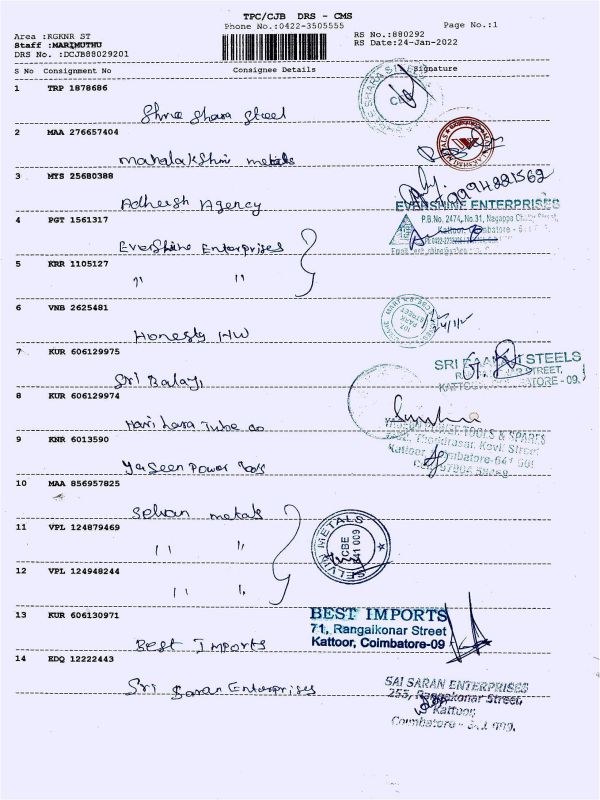 TPC/CJB DRS - CMS
Phone No.:0422-3505555
Page No.:1
Area :RGKNR ST
RS No.:880292
Staff :MARIMUTHU
RS Date:24-Jan-2022
DRS No. :DCJB88029201
S No Consignment No Consignee Details Signature
1 TRP 1878686
Shree Shara Steel
2 MAA 276657404
Mahalakshmi metals
3 MTS 25680388
9994221562
Adheesh Agency
EVERSHINE ENTERPRISES
4 PGT 1561317
P.B.No. 2474, No.31, Nagappa Street,
Kattoor, Coimbatore
Evershine Enterprises
5 KRR 1105127
" "
6 VNB 2625481
Honesty HW
7 KUR 606129975
SRI STEELS
STREET,
KATTOOR, COIMBATORE -09.
Sri Balaji
8 KUR 606129974
Hari hara Tube co
9 KNR 6013590
TOOLS & SPARES
Kovil Street
Kattoor
Yaseen Power Tools
10 MAA 856957825
Selvan metals
11 VPL 124879469
SELVIN METALS
CBE
641 009
" "
12 VPL 124948244
" "
13 KUR 606130971
BEST IMPORTS
71, Rangaikonar Street
Kattoor, Coimbatore-09
Best Imports
14 EDQ 12222443
Sri Saran Enterprises
SAI SARAN ENTERPRISES
255, Rangakonar Street,
Kattoor,
Coimbatore